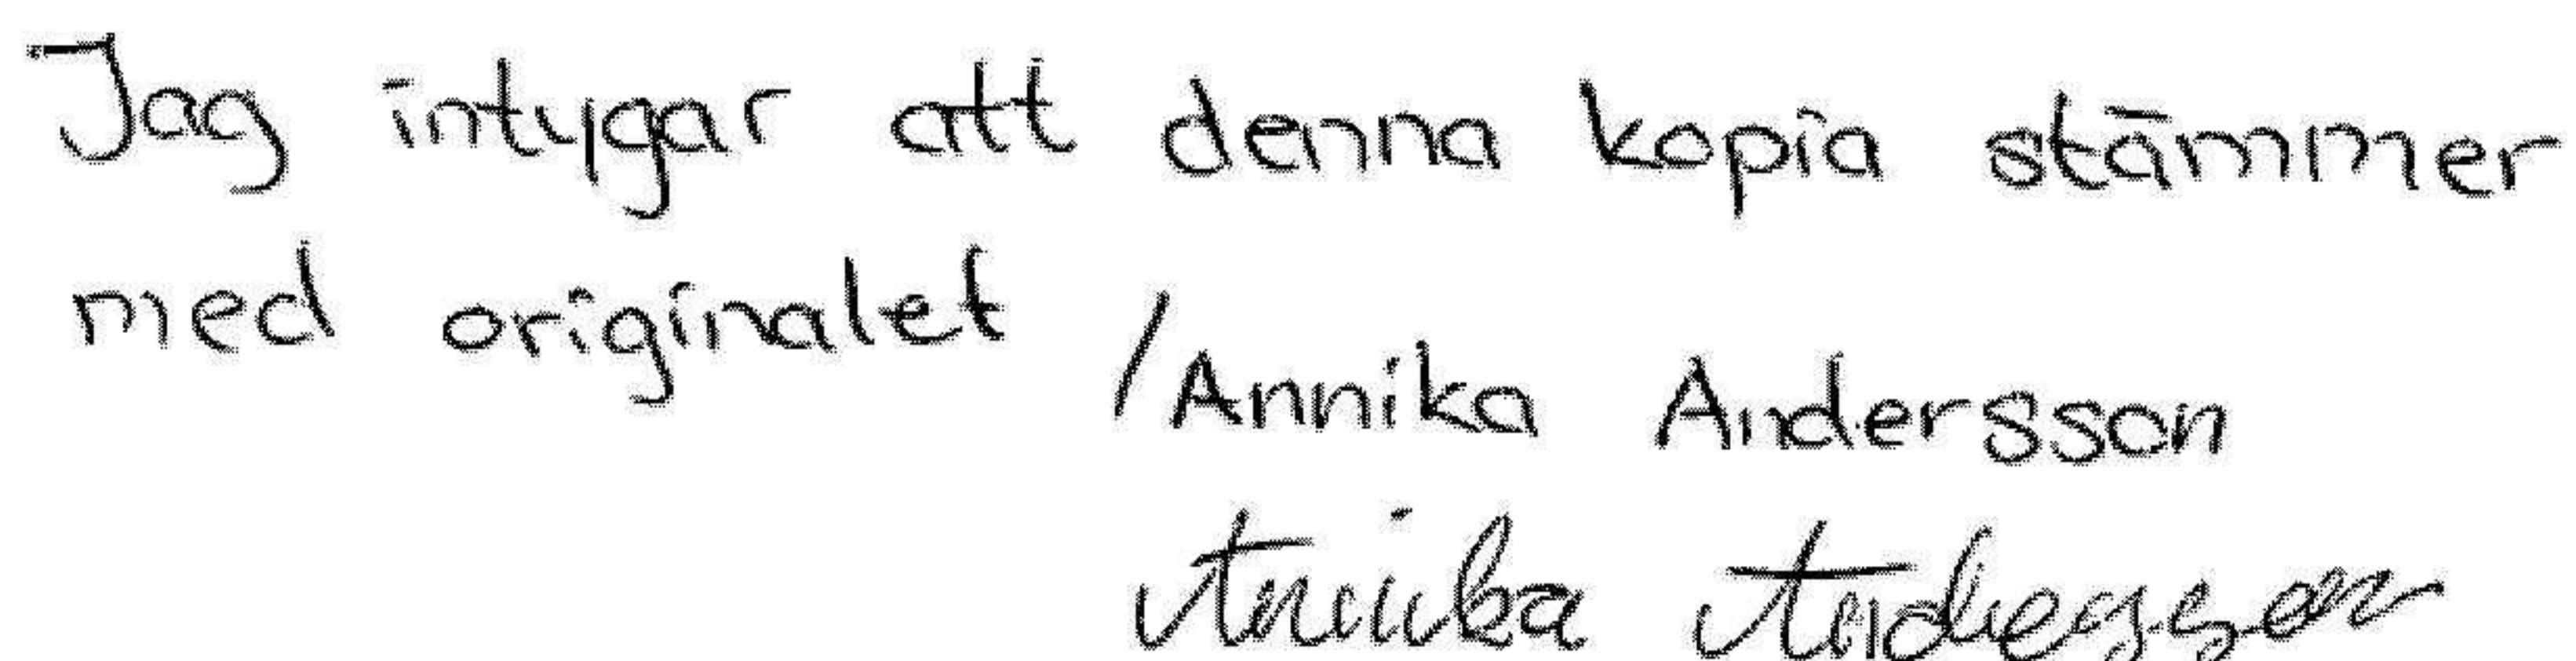 Jag intygar att denna kopia stämmer
med originalet
/Annika Andersson
Annika Andersson